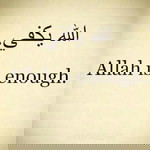 الله يكفي
Allah is enough.